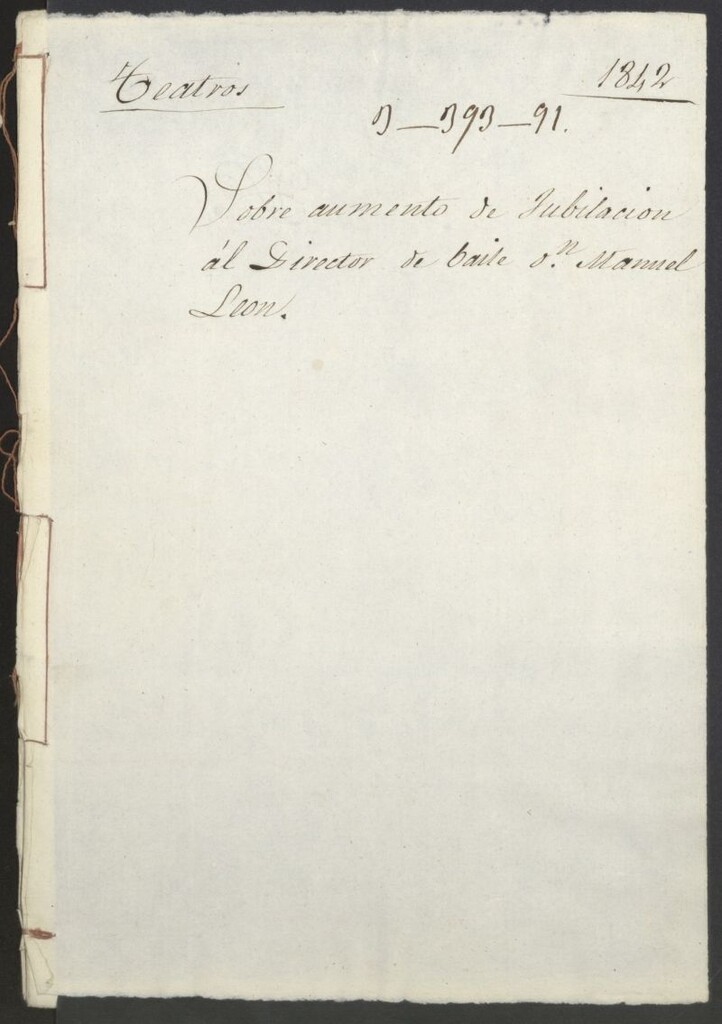 Teatros
1842
3-393-91.
Sobre aumento de Jubilacion
ál Director de baile Dn. Manuel
Leon.